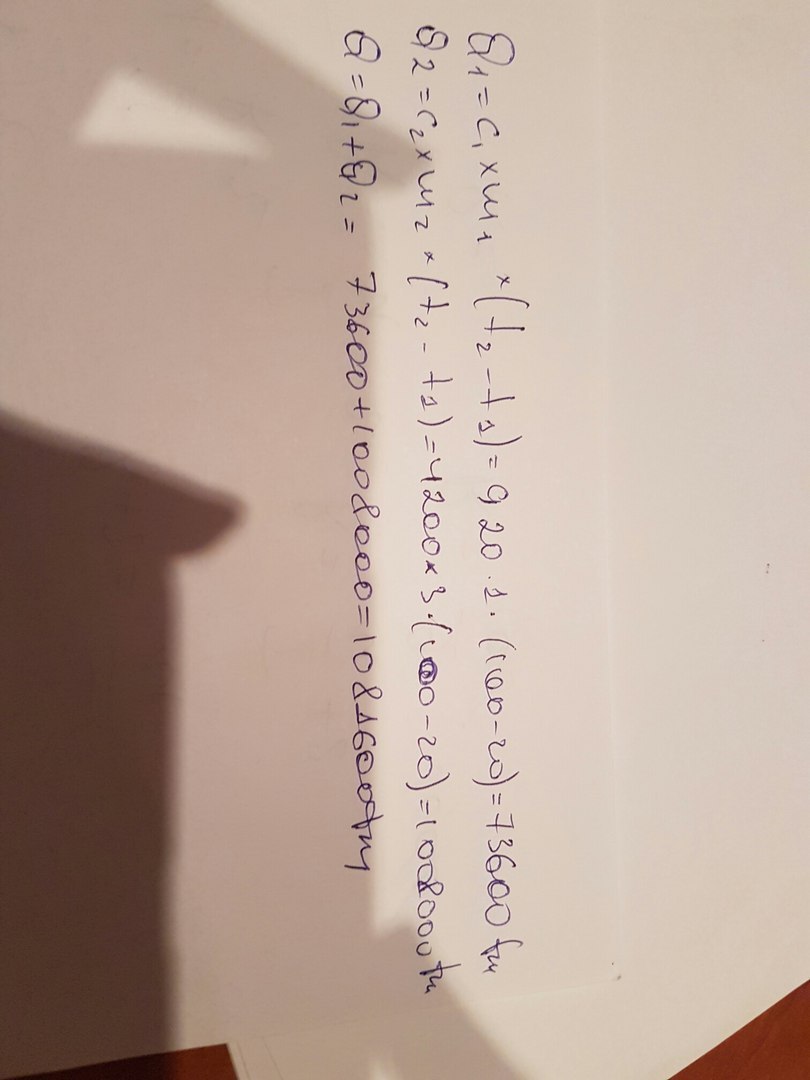 Q1=c1×m1×(t2-t1)=920·1·(100-20)=73600 Дж
Q2=c2×m2×(t2-t1)=4200×3·(100-20)=1008000 Дж
Q=Q1+Q2=73600+1008000=1081600Дж